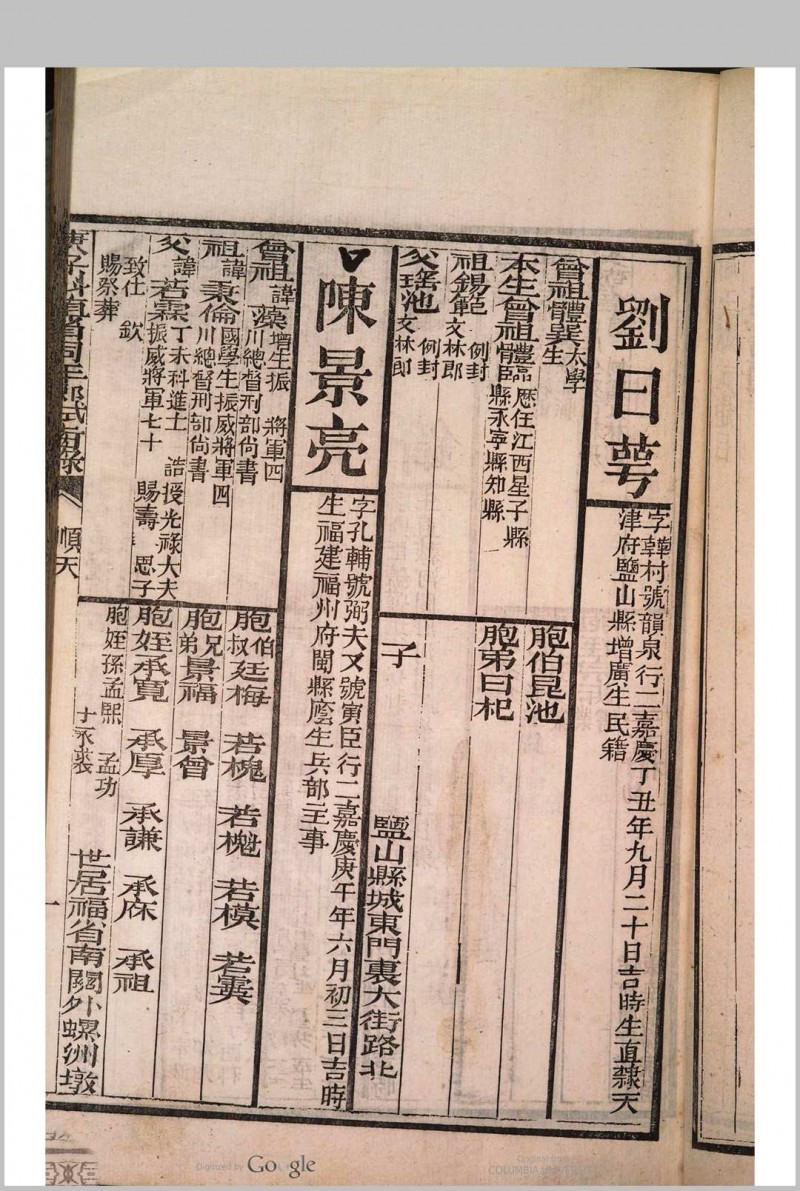 劉曰萼
字韡村號韻泉行二嘉慶丁丑年九月二十日吉時生直隸天
津府鹽山縣增廣生民籍
曾祖體巽太學
生
本生曾祖體臨歷任江西星子縣
縣永寧縣知縣
祖錫範例封
文林郎
父瑤池例封
文林郎
胞伯昆池
胞弟曰杞
子
鹽山縣城東門裏大街路北
陳景亮
字孔輔號弼夫又號寅臣行二嘉慶庚午年六月初三日吉時
生福建福州府閩縣廕生兵部主事
曾祖諱藻增生振將軍四
川總督刑部尚書
祖諱秉倫國學生振威將軍四
川總督刑部尚書
父諱若霖丁未科進士誥授光祿大夫
振威將軍七十賜壽恩予
致仕欽
賜祭葬
胞伯叔廷梅 若槐 若槐 若模 若霙
胞兄弟景福 景曾
胞姪承寬 承厚 承謙 承庥 承祖
胞姪孫孟熙 孟功
承裘
世居福省南關外螺洲墩
順天
Digitized by Google
Original from
COLUMBIA UNIVERSITY